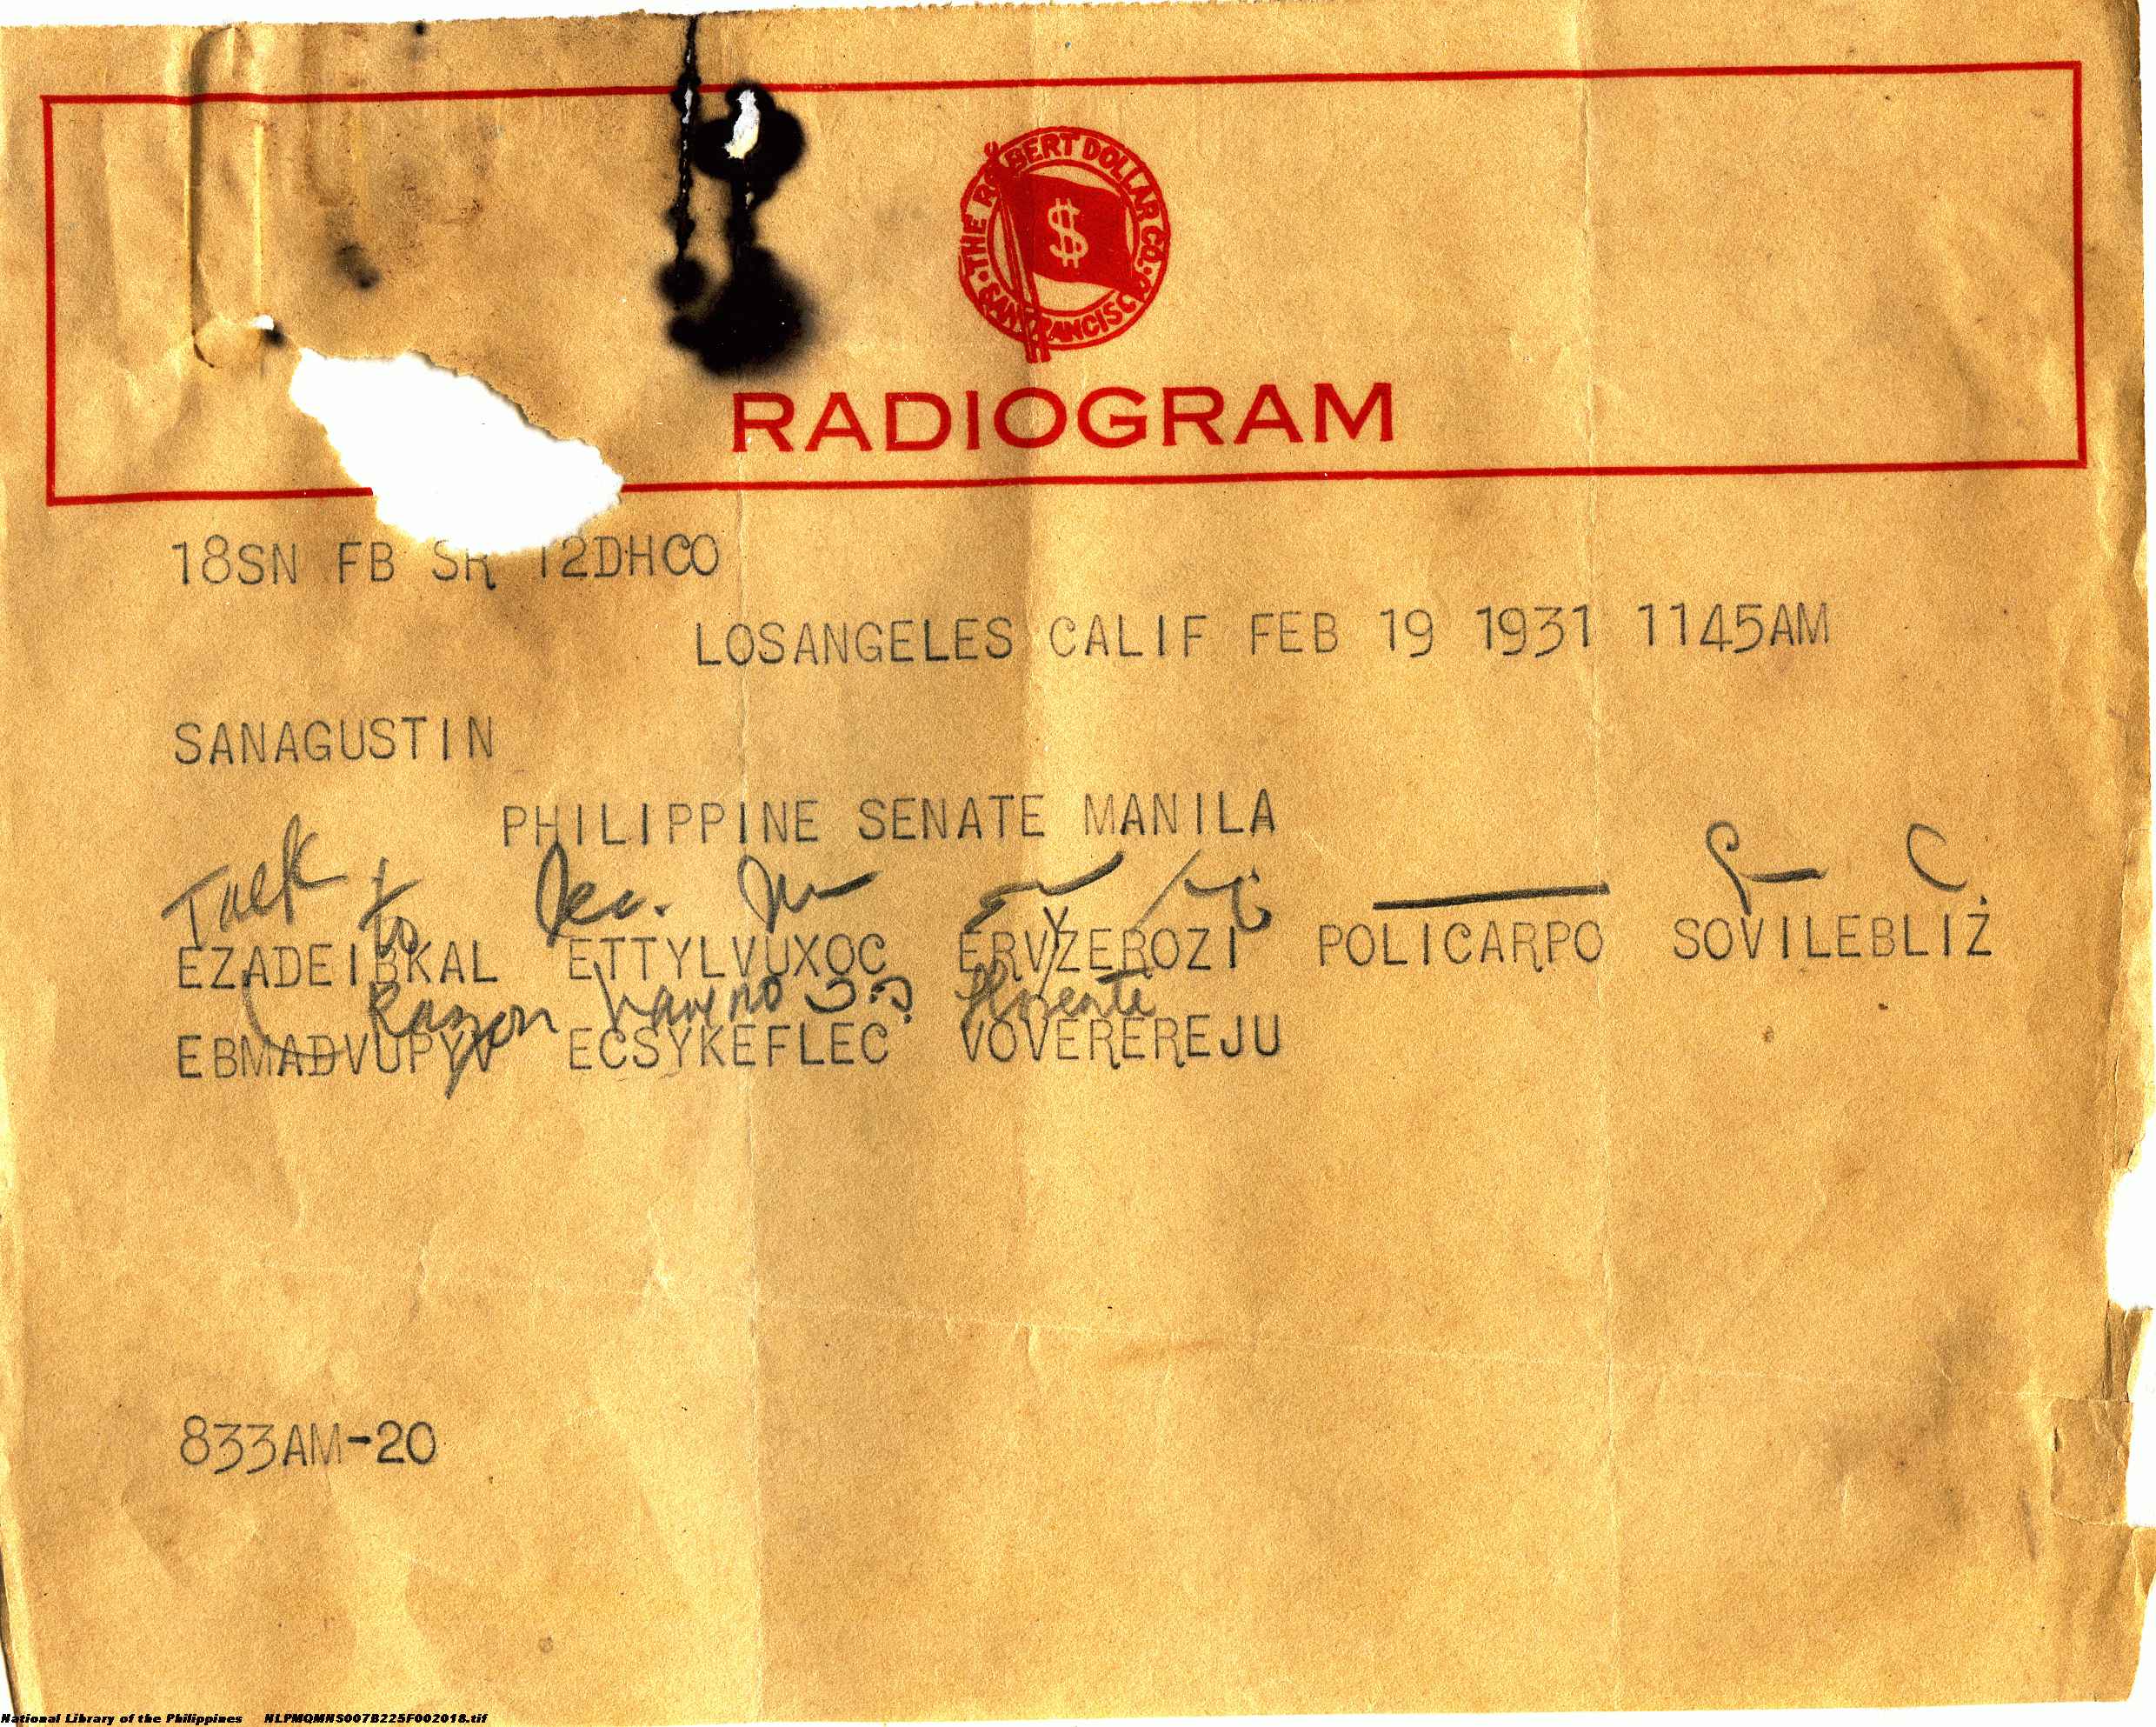 THE ROBERT DOLLAR CO. SAN FRANCISCO
$
RADIOGRAM
18SN FB SR 12DHCO
LOSANGELES CALIF FEB 19 1931 1145AM
SANAGUSTIN
PHILIPPINE SENATE MANILA
Talk to
EZADEIBKAL ETTYLVUXOC ERVYZEROZI POLICARPO SOVILEBLIZ
Razon have no
EBMADVUPYV ECSYKEFLEC VOVEREREJU
833AM-20
National Library of the Philippines NLPMQMNS007B225F002018.tif